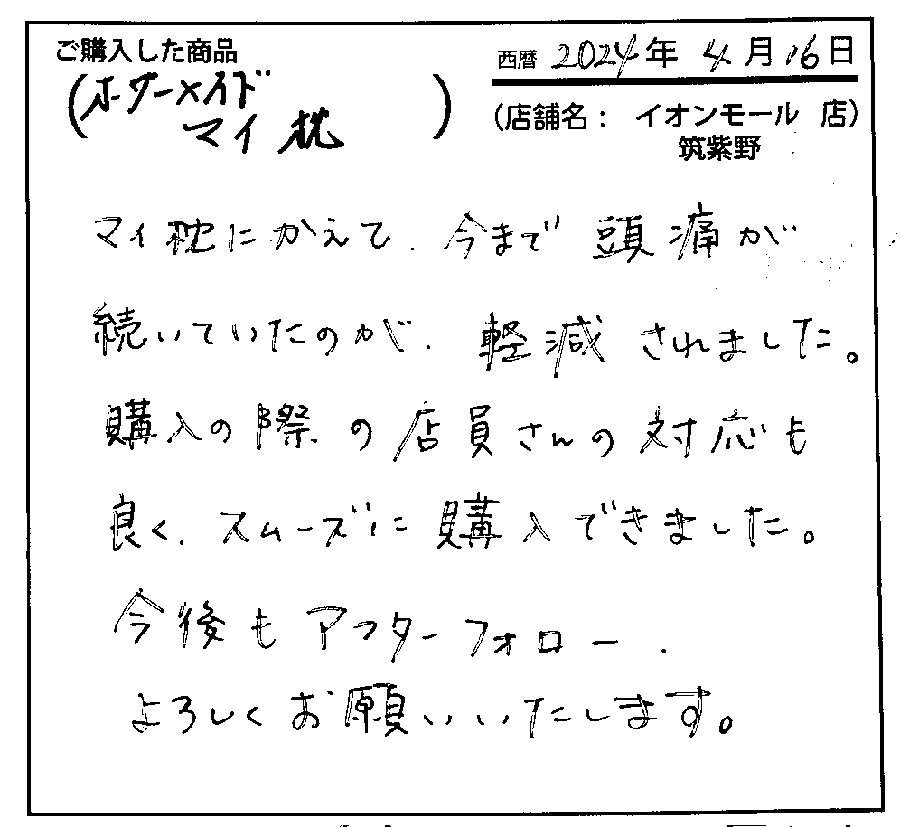 ご購入した商品
西暦 2024年 4月16日
(オーダーメイド
マイ枕 )
(店舗名: イオンモール 店)
筑紫野
マイ枕にかえて、今まで頭痛が
続いていたのが、軽減されました。
購入の際の店員さんの対応も
良く、スムーズに購入できました。
今後もアフターフォロー、
よろしくお願いいたします。